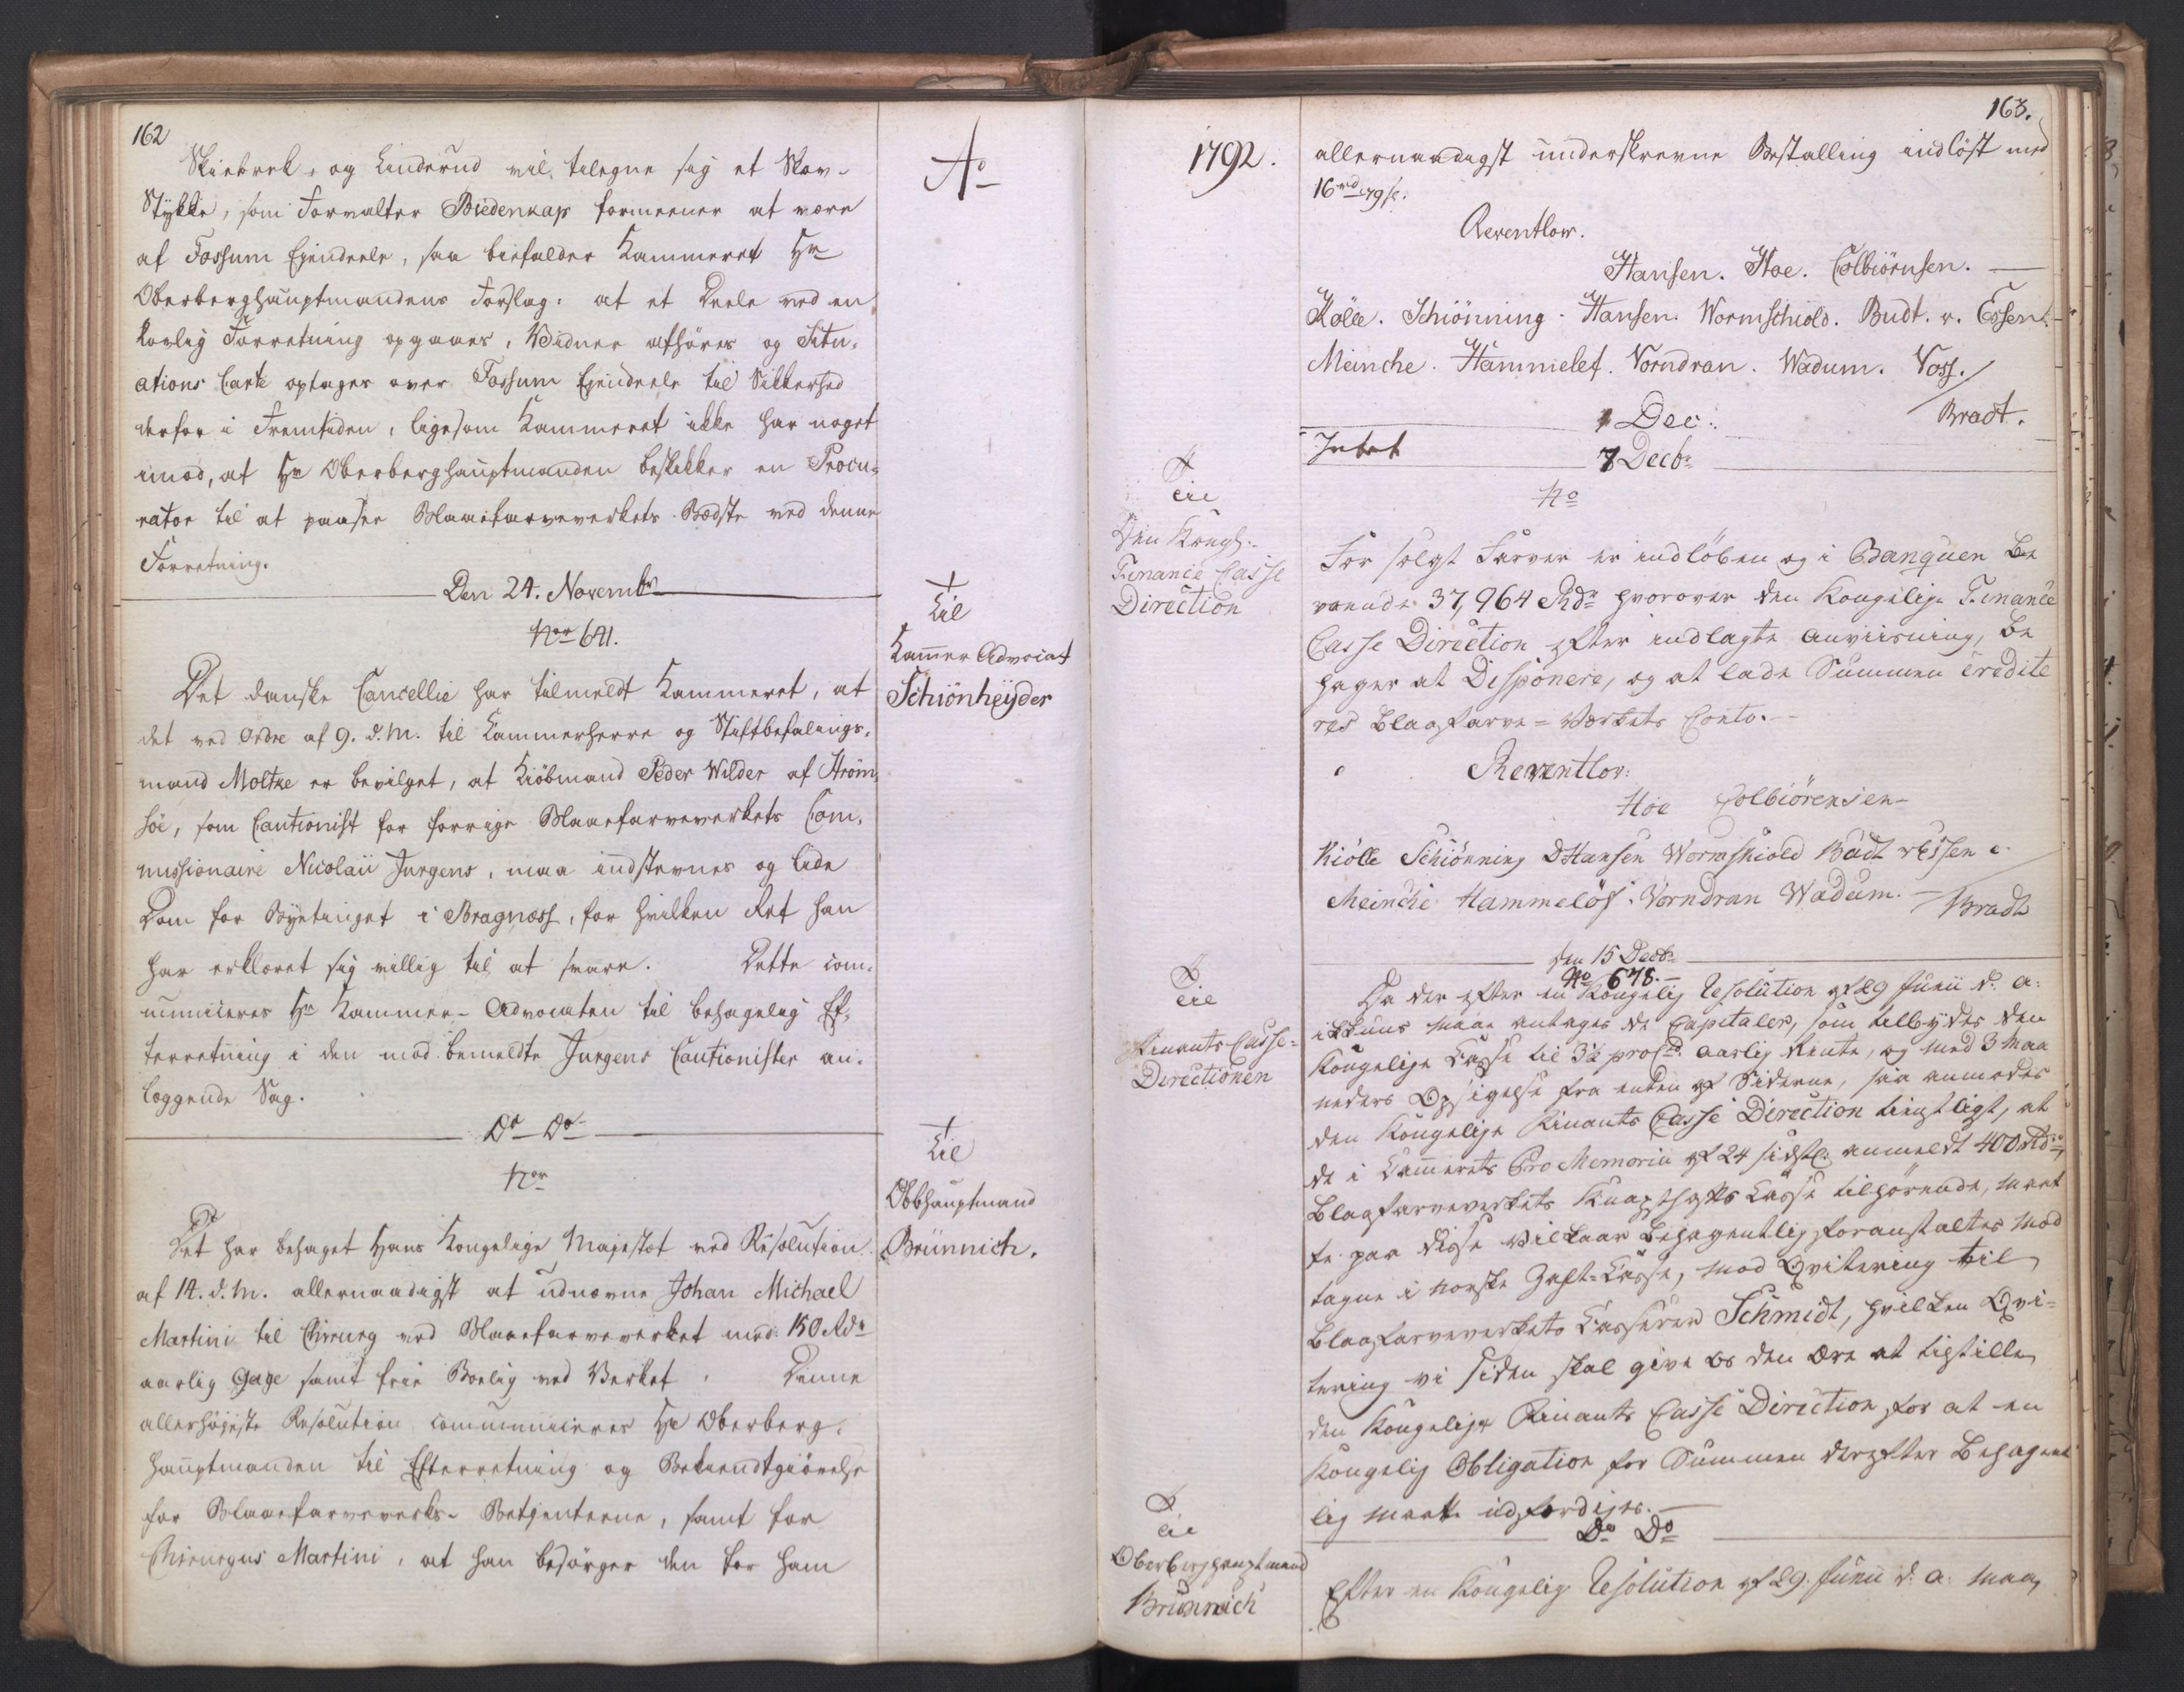 162
Skiebrek, og Linderud vil, tilegne sig et Skov-
Stykke, som Forvalter Biedenkap formeener at være
af Fossum Eiendeele, saa biefalder Kammeret Hr
Oberberghauptmandens Forslag: at et Deele ved en
Lovlig Forretning opgaaes, Vidner afhöres og Situ-
ations Carte optages over Fossum Eiendeele til Sikkerhed
derfor i Fremtiden, ligesom Kammeret ikke har noget
imod, at Hr Oberberghauptmanden beskikker en Procu-
rator til at paasee Blaaefarveverkets Bedste ved denne
Forretning.
Den 24. Novembr
Nor 641.
Det danske Cancellie har tilmeldt Kammeret, at
det ved Ordre af 9. d. M. til Kammerherre og Stiftbefalings-
mand Moltke er bevilget, at Kiöbmand Peder Wilder af Ström-
söe, som Cautionist for forrige Blaaefarveverkets Com-
missionaire Nicolaii Jurgens, maa indstevnes og lide
Dom for Byetinget i Bragness, for hvilken Ret han
har erklæret sig villig til at svare. Dette com-
municeres Hr Kammer-Advocaten til behagelig Ef-
terretning i den mod bemeldte Jurgens Cautionister an-
læggende Sag.
Do Do
Nor
Det har behaget Hans Kongelige Majestæt ved Resolution
af 14. d. M. allernaadigst at udnævne Johan Michael
Martini til Chirurg ved Blaaefarveverket med 150 Rdr
aarlig Gage samt frie Boelig ved Verket. Denne
allerhöieste Resolution communiceres Hr Oberberg-
hauptmanden til Efterretning og Bekiendtgiörelse
for Blaaefarveverks-Betjenterne, samt for
Chirurgus Martini, at han besörger den for ham
Ao
Til
Kammer Advocat
Schiönheyder
Til
Obbhauptmand
Brünnich.
1792.
Til
Den Kongl.
Finance Casse
Direction
Til
Finants-Casse-
Directionen
Til
Oberberghauptmand
Brünnich
163.
allernaadigst underskrevne Bestalling indlöst med
16 rd 79 s.
Reventlow.
Hansen. Hoe. Colbiörnsen.
Kölle. Schiönning. Hansen. Wormschiold. Budt. v. Essen.
Meinche. Hammelef. Vorndran. Wadum. Voss.
Bradt.
1 Dec:
Intet
7 Decbr
No
For solgt Farver er indlöben og i Banquen be
roende 37,964 Rdr hvorover den Kongelige Finance
Casse Direction efter indlagte Anviisning, be
hager at Disponere, og at lade Summen credite
res Blaafarve-Værkets Conto.
Reventlov.
Hoe Colbiörensen
Kiölle Schiönning DHansen Wormskiold Budt vEssen
Meinche Hammelöf. Vorndran Wadum.
Bradt
den 15 Decbr
No 678.
Da der efter en Kongelig Resolution af 29 Junii d. a.
ikkuns maae antages de Capitaler, som tilbydes den
Kongelige Casse til 3½ proCt. aarlig Rente, og med 3 Maa
neders Opsigelse fra enden af Siderne, saa anmodes
den Kongelige Finants Casse Direction tienstligt, at
de i Cammerets Pro Memoria af 24 sidstl. anmeldt 400 Rdr,
Blaafarveverkets Knapskafts Casse tilhörende, maat
te paa disse Vilkaar behagentlig foranstaltes mod
tagne i norske Zahl-Casse, mod Qvitering til
Blaafarveverkets Casserer Schmidt, hvilken Qvi-
tering vi siden skal give os den Ære at tilstille
den Kongelige Finants Casse Direction, for at en
Kongelig Obligation for Summen derefter behagent
lig maatte udfærdiges.
Do Do
Efter en Kongelig Resolution af 29. Junii d. a. maa